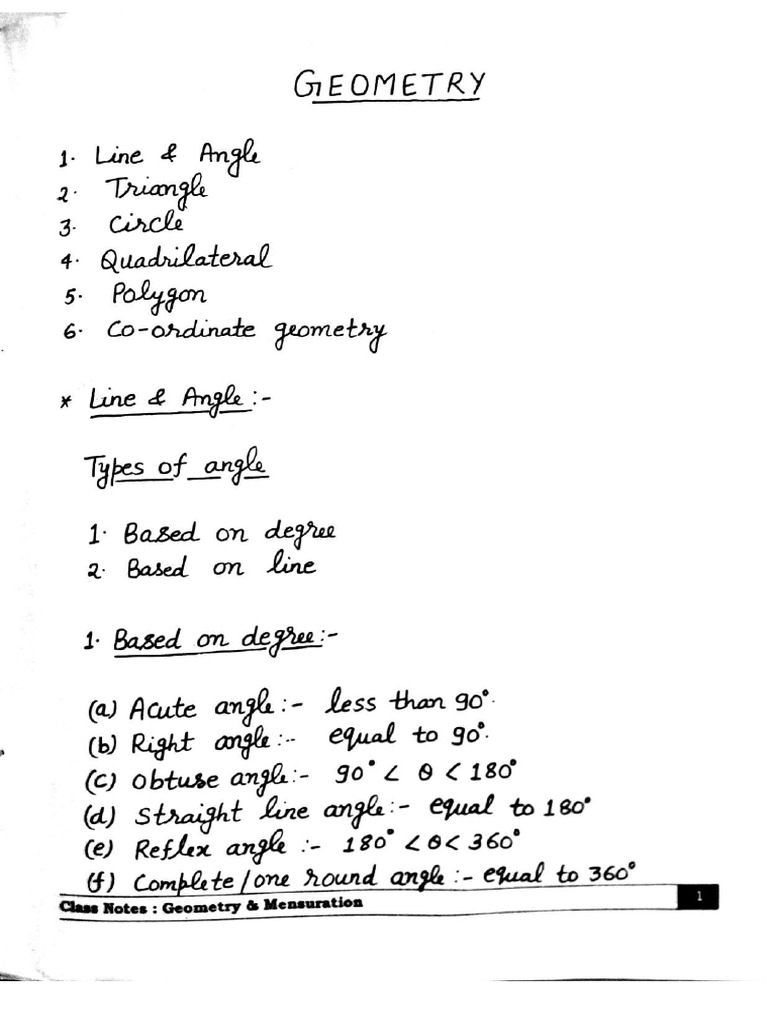 GEOMETRY
1. Line & Angle
2. Triangle
3. Circle
4. Quadrilateral
5. Polygon
6. Co-ordinate geometry
* Line & Angle :-
Types of angle
1. Based on degree
2. Based on line
1. Based on degree :-
(a) Acute angle :- less than 90°.
(b) Right angle :- equal to 90°.
(c) Obtuse angle :- 90° < θ < 180°
(d) Straight line angle :- equal to 180°
(e) Reflex angle :- 180° < θ < 360°
(f) Complete/one round angle :- equal to 360°
Class Notes : Geometry & Mensuration 1